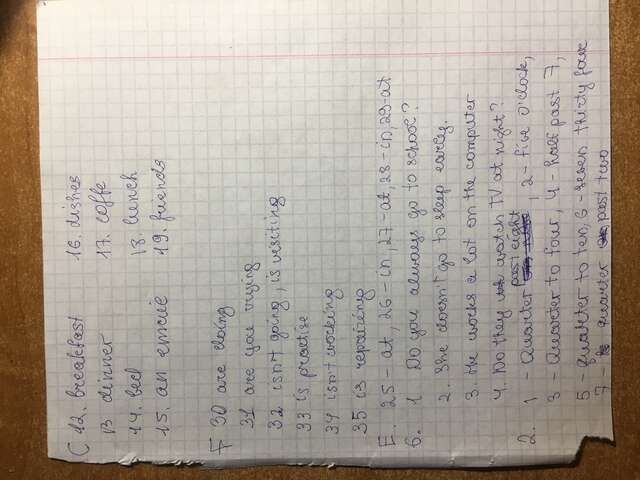 C 12. breakfast 16. dishes
13 dinner 17. coffe
14. bed 18. lunch
15. an emaile 19. friends
F 30 are doing
31 are you trying
32 isn't going, is visiting
33 is practise
34 isn't working
35 is repaireng
E. 25 - at, 26 - in, 27 - at, 28 - in, 29 - at
6. 1 Do you always go to school?
2. She doesn't go to sleep early.
3. He works a lot on the computer
4. Do they watch TV at night?
2. 1 - Quarter past eight, 2 - five o'clock,
3 - Quarter to four, 4 - half past 7,
5 - quarter to ten, 6 - seven thirty four
7 - quarter past two